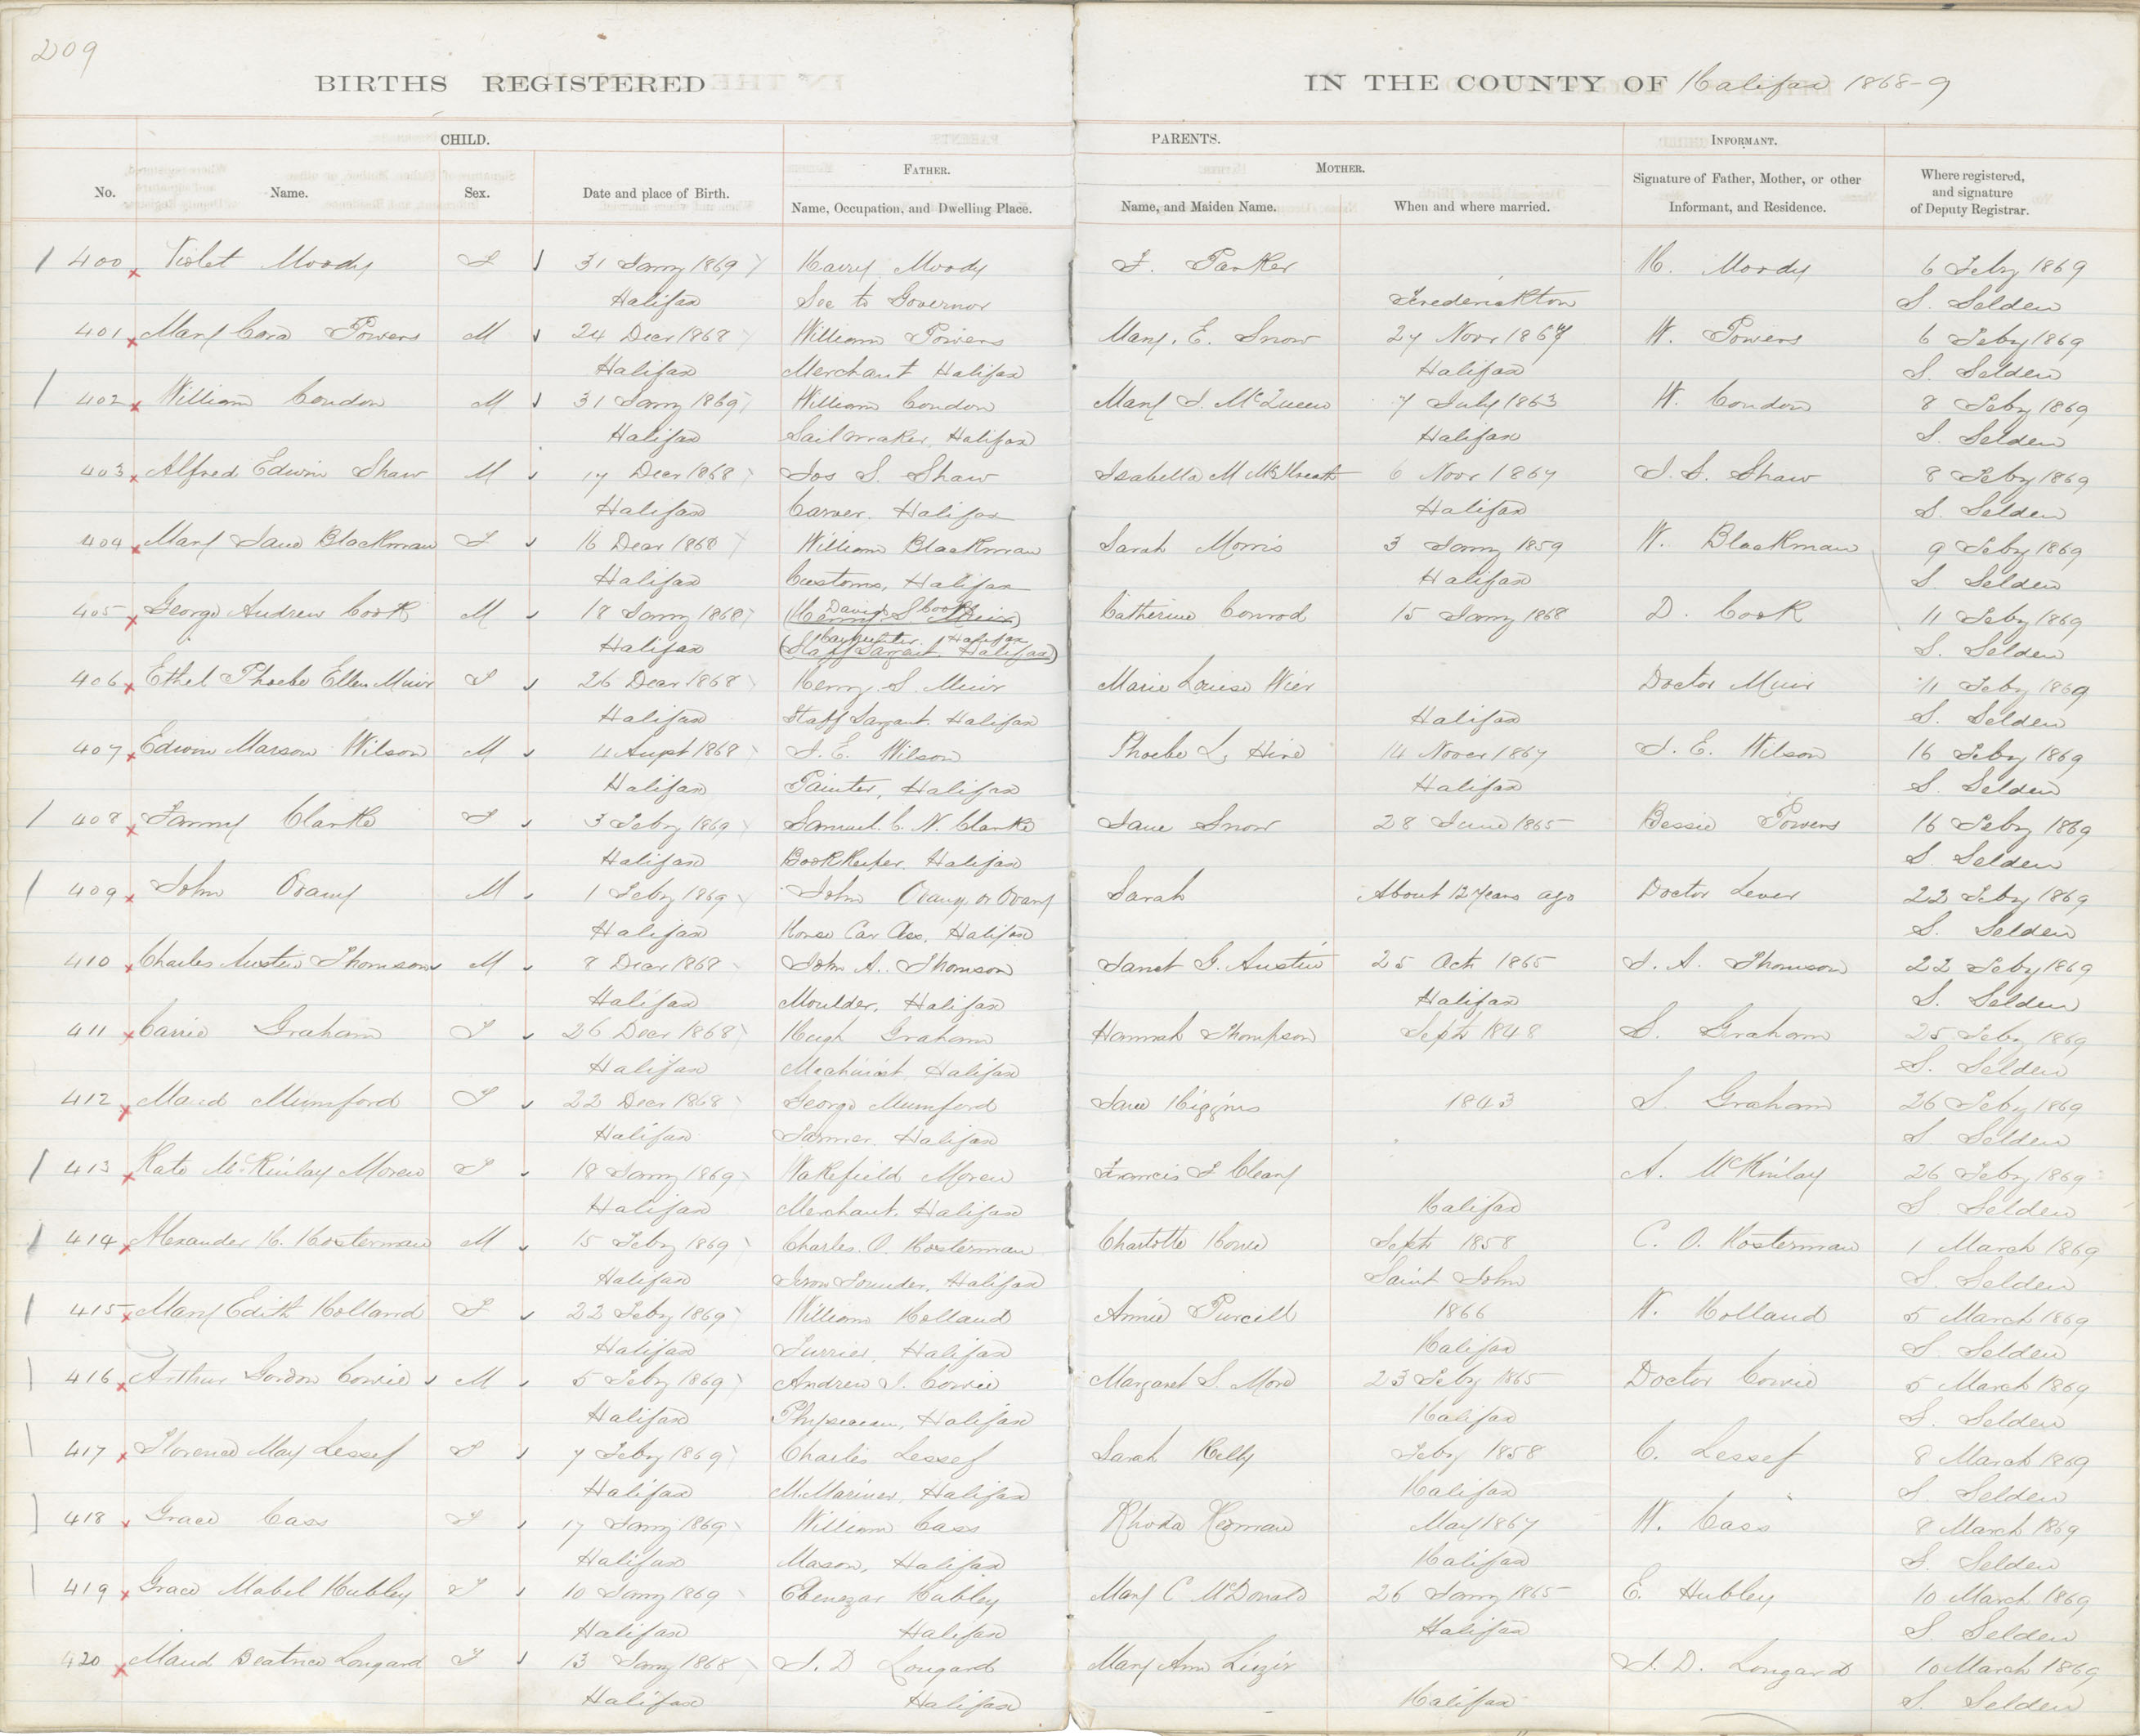 209
BIRTHS REGISTERED IN THE COUNTY OF Halifax 1868-9
CHILD. PARENTS. INFORMANT.
FATHER. MOTHER.
No. Name. Sex. Date and place of Birth. Name, Occupation, and Dwelling Place. Name, and Maiden Name. When and where married. Signature of Father, Mother, or other Informant, and Residence. Where registered, and signature of Deputy Registrar.
400 Violet Moody F 31 Jany 1869 Harry Moody F. Parker H. Moody 6 Feby 1869
Halifax Sec to Governor Frederickton S. Selden
401 Mary Cora Powers M 24 Decr 1868 William Powers Mary. E. Snow 27 Novr 1867 W. Powers 6 Feby 1869
Halifax Merchant Halifax Halifax S. Selden
402 William Condon M 31 Jany 1869 William Condon Mary J. McQueen 7 July 1863 W. Condon 8 Feby 1869
Halifax Sailmaker, Halifax Halifax S. Selden
403 Alfred Edwin Shaw M 17 Decr 1868 Jos S. Shaw Isabella M 6 Novr 1867 J. S. Shaw 8 Feby 1869
Halifax Carver, Halifax Halifax S. Selden
404 Mary Jane Blackman F 16 Decr 1868 William Blackman Sarah Morris 3 Jany 1859 W. Blackman 9 Feby 1869
Halifax Customs, Halifax Halifax S. Selden
405 George Andrew Cook M 18 Jany 1868 David S Cook (Henry S. Muir) Catherine Conrod 15 Jany 1868 D. Cook 11 Feby 1869
Halifax Carpenter. Halifax (Staff Sargant, Halifax) S. Selden
406 Ethel Phoebe Ellen Muir F 26 Decr 1868 Henry. S. Muir Marie Louise Wier Doctor Muir 11 Feby 1869
Halifax Staff Sargant. Halifax Halifax S. Selden
407 Edwin Marson Wilson M 4 Augst 1868 J. E. Wilson Phoebe L, Hind 14 Novr 1867 J. E. Wilson 16 Feby 1869
Halifax Painter, Halifax Halifax S. Selden
408 Fanny Clarke F 3 Feby 1869 Samuel. C. N. Clarke Jane Snow 28 June 1865 Bessie Powers 16 Feby 1869
Halifax BookKeeper. Halifax S. Selden
409 John Orany M 1 Feby 1869 John Orang or Orany Sarah About 12 Years ago Doctor Lever 22 Feby 1869
Halifax Horse Car Ass. Halifax S. Selden
410 Charles Austin Thomson M 8 Decr 1868 John A. Thomson Janet G. Austin 25 Oct 1865 J. A. Thomson 22 Feby 1869
Halifax Moulder, Halifax Halifax S. Selden
411 Carrie Graham F 26 Decr 1868 Hugh Graham Hannah Thompson Sept 1848 S. Graham 25 Feby 1869
Halifax Machinist Halifax S. Selden
412 Maud Mumford F 22 Decr 1868 George Mumford Jane Higgins 1843 S. Graham 26 Feby 1869
Halifax Farmer. Halifax S. Selden
413 Kate McKinlay Moren F 18 Jany 1869 Wakefield Moren Francis F Cleary A. McKinlay 26 Feby 1869
Halifax Merchant, Halifax Halifax S Selden
414 Alexander H. Hosterman M 15 Feby 1869 Charles. O. Hosterman Charlotte Howe Sept 1858 C. O. Hosterman 1 March 1869
Halifax Iron Founder, Halifax Saint John S. Selden
415 Mary Edith Holland F 22 Feby 1869 William Holland Annie Purcell 1866 W. Holland 5 March 1869
Halifax Furrier, Halifax Halifax S. Selden
416 Arthur Gordon Cowie M 5 Feby 1869 Andrew J. Cowie Margaret S. 23 Feby 1865 Doctor Cowie 5 March 1869
Halifax Physician, Halifax Halifax S. Selden
417 Florence May Lessef F 7 Feby 1869 Charles Lessef Sarah Kelly Feby 1858 C. Lessef 8 March 1869
Halifax M.Mariner, Halifax Halifax S. Selden
418 Grace Cass F 17 Jany 1869 William Cass Rhoda May 1867 W. Cass 8 March 1869
Halifax Mason, Halifax Halifax S. Selden
419 Grace Mabel Hubley F 10 Jany 1869 Ebenezar Hubley Mary C McDonald 26 Jany 1865 E. Hubley 10 March 1869
Halifax Halifax Halifax S Selden
420 Maud Beatrice Longard F 13 Jany 1868 J. D Longard Mary Ann J. D. Longard 10 March 1869
Halifax Halifax Halifax S. Selden